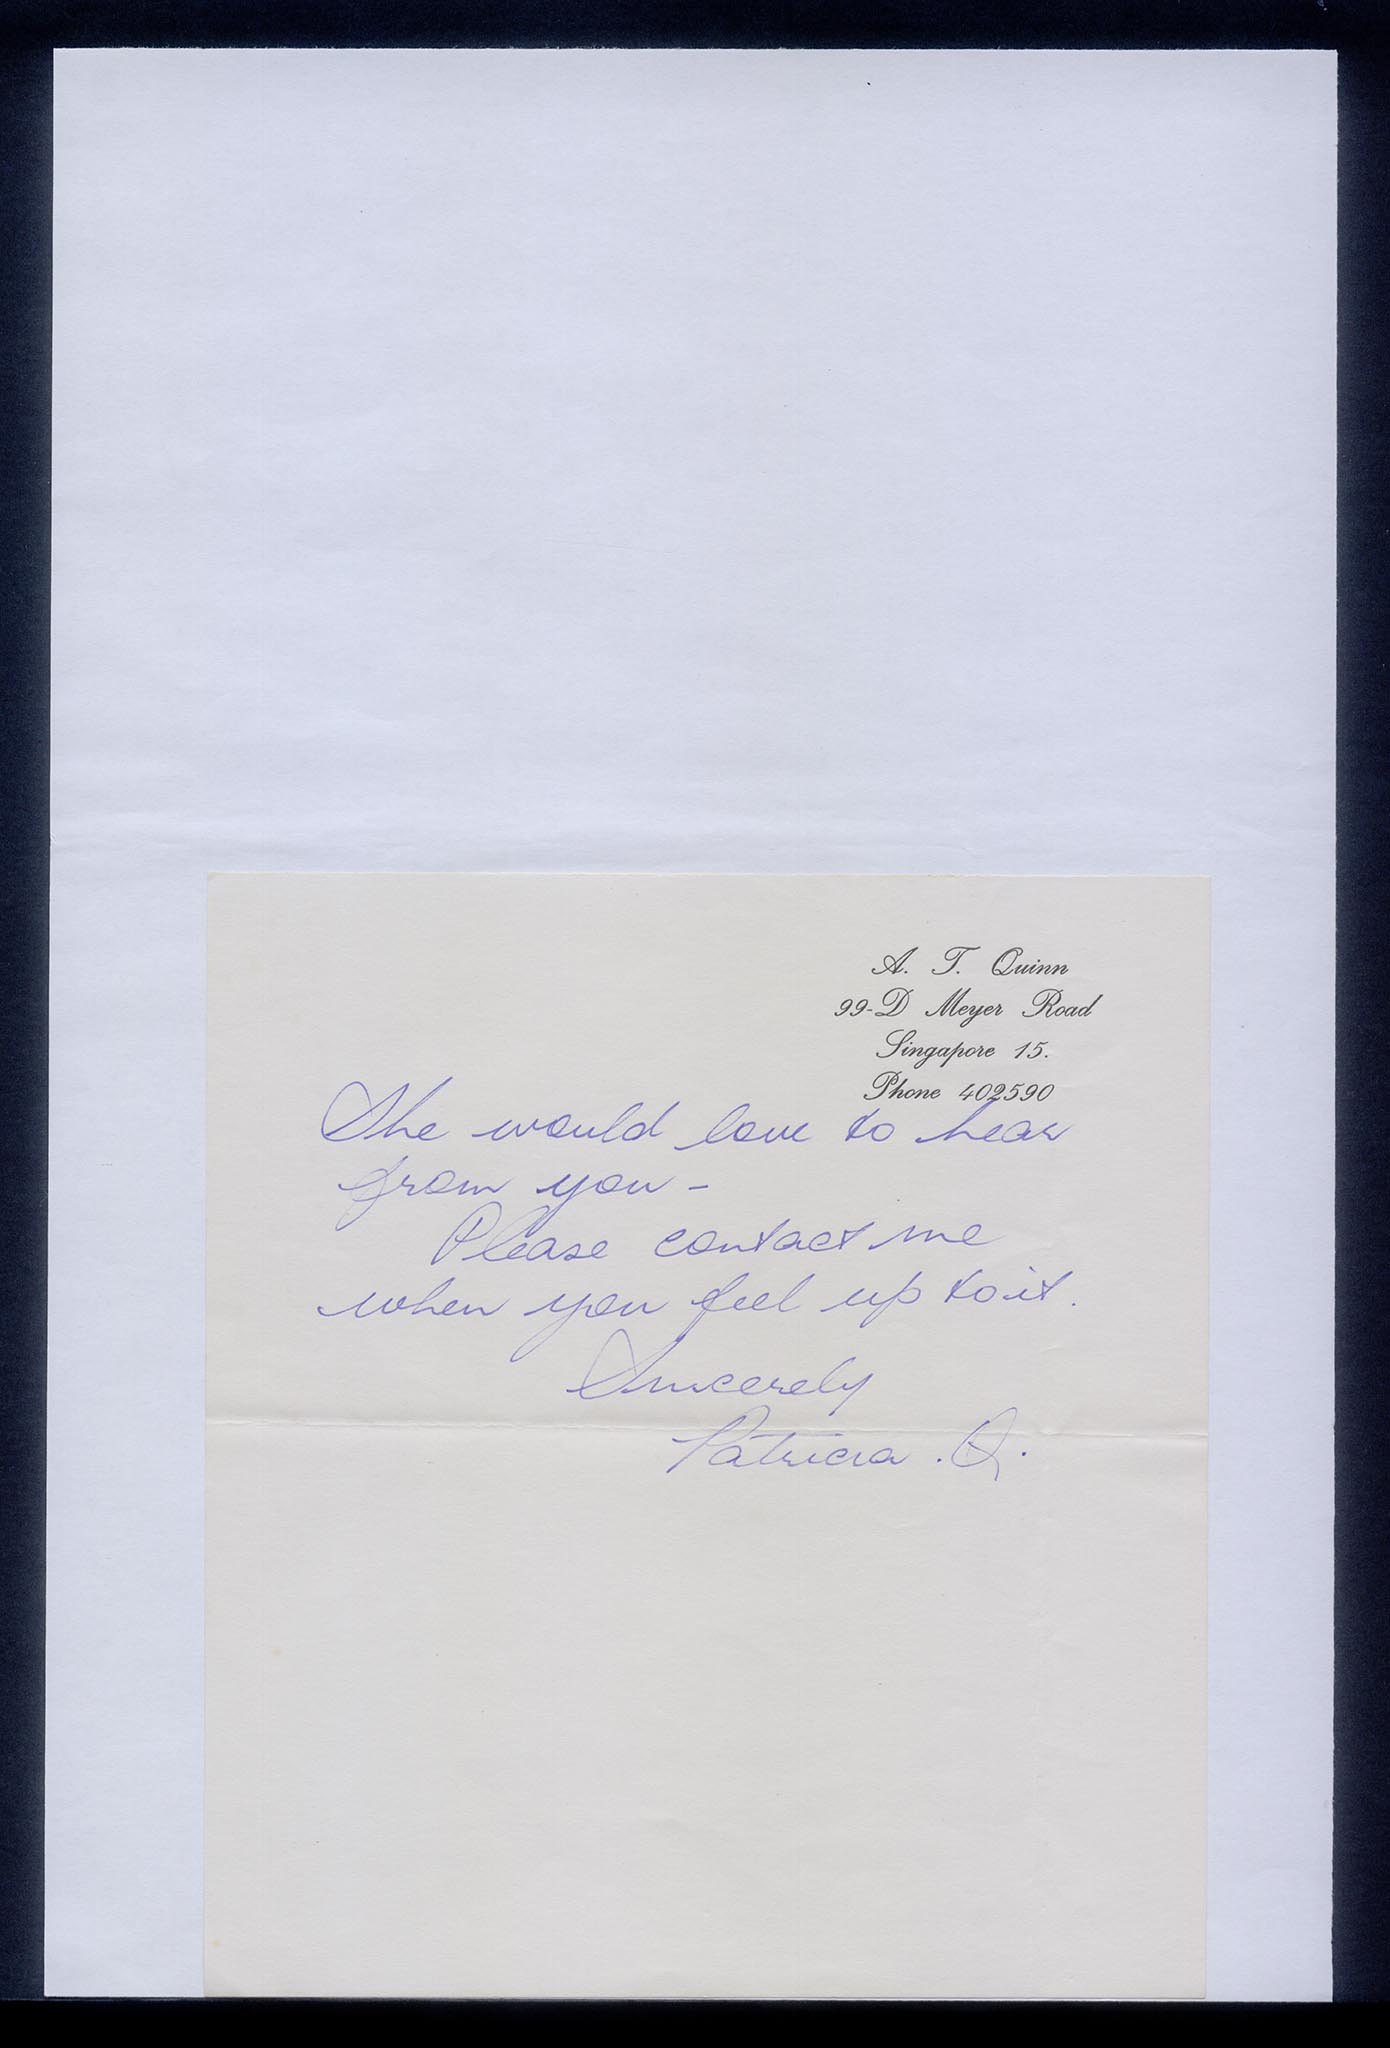 A. T. Quinn
99-D Meyer Road
Singapore 15.
Phone 402590
She would love to hear
from you -
Please contact me
when you feel up to it.
Sincerely
Patricia . Q.